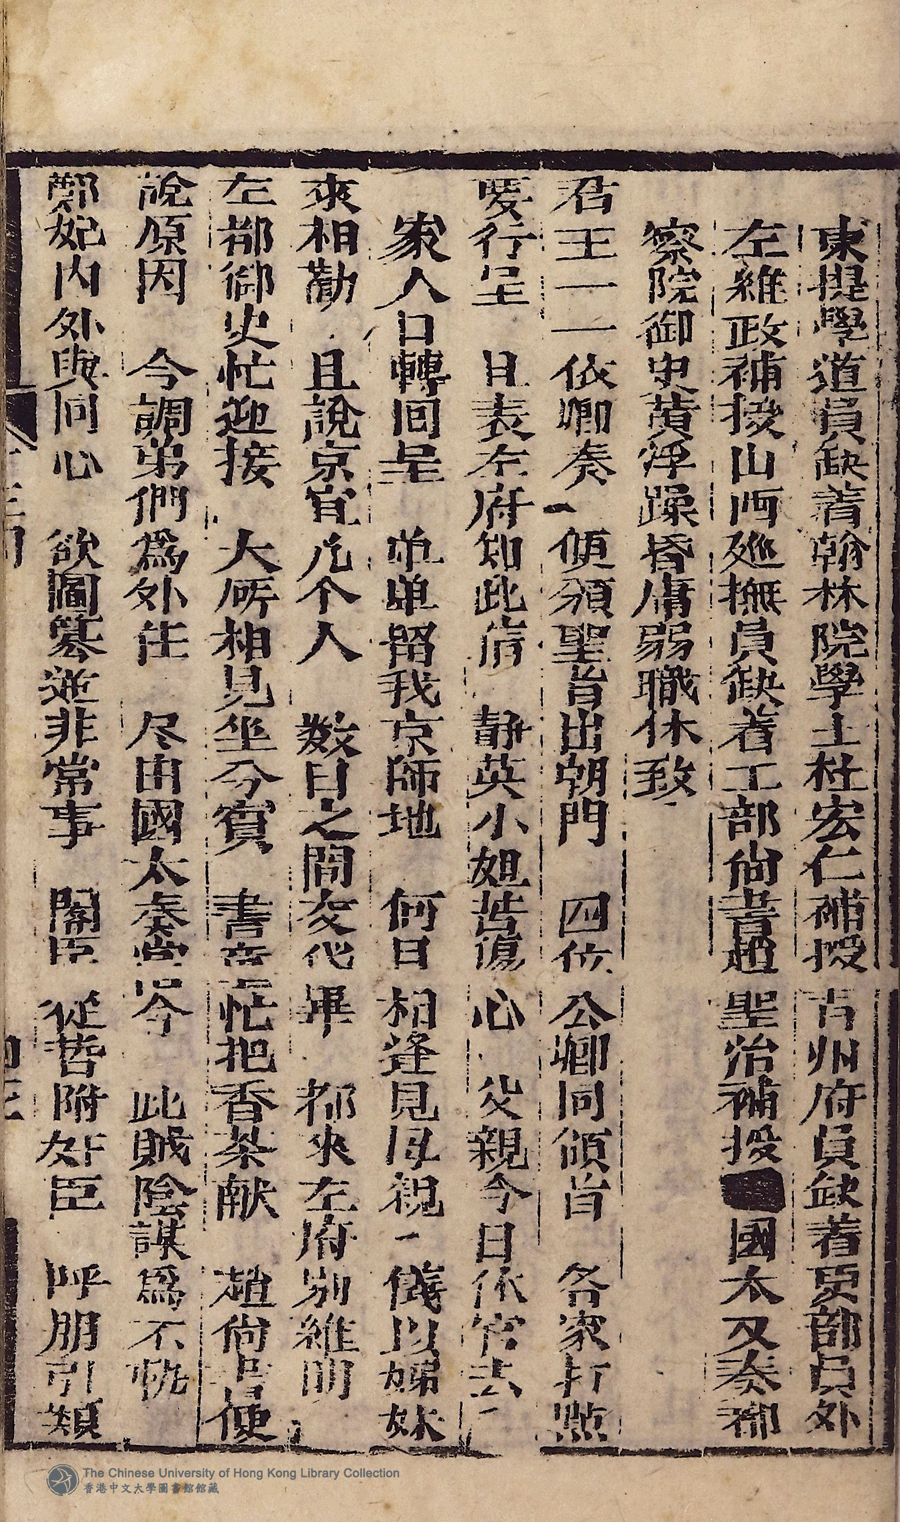 東提學道員缺着翰林院學士杜宏仁補授古州府員缺着吏部員外
左維政補授山西廵撫員缺着工部尚書趙聖治補授國太又奏都
察院御史黃浮躁昏庸弱職休致
君王一一依卿奏 便頒聖旨出朝門 四位公卿同領旨 各家打點
要行呈 且表左府知此情 靜英小姐苦傷心 父親今日休官去
家人口轉回呈 单单留我京師地 何日相逢見母親 儀以娣妹
來相勸 且說京官几个人 数日之間交代畢 都來左府別維明
左都御史忙迎接 大所相見坐分賓 書童忙把香茶献 趙尚書便
說原因 今調弟們爲外任 尽由國太奏當今 此賊陰謀爲不軌
鄭妃内外與同心 欲圖篡逆非常事 閣臣從哲附奸臣 呼朋引類
The Chinese University of Hong Kong Library Collection
香港中文大學圖書館館藏